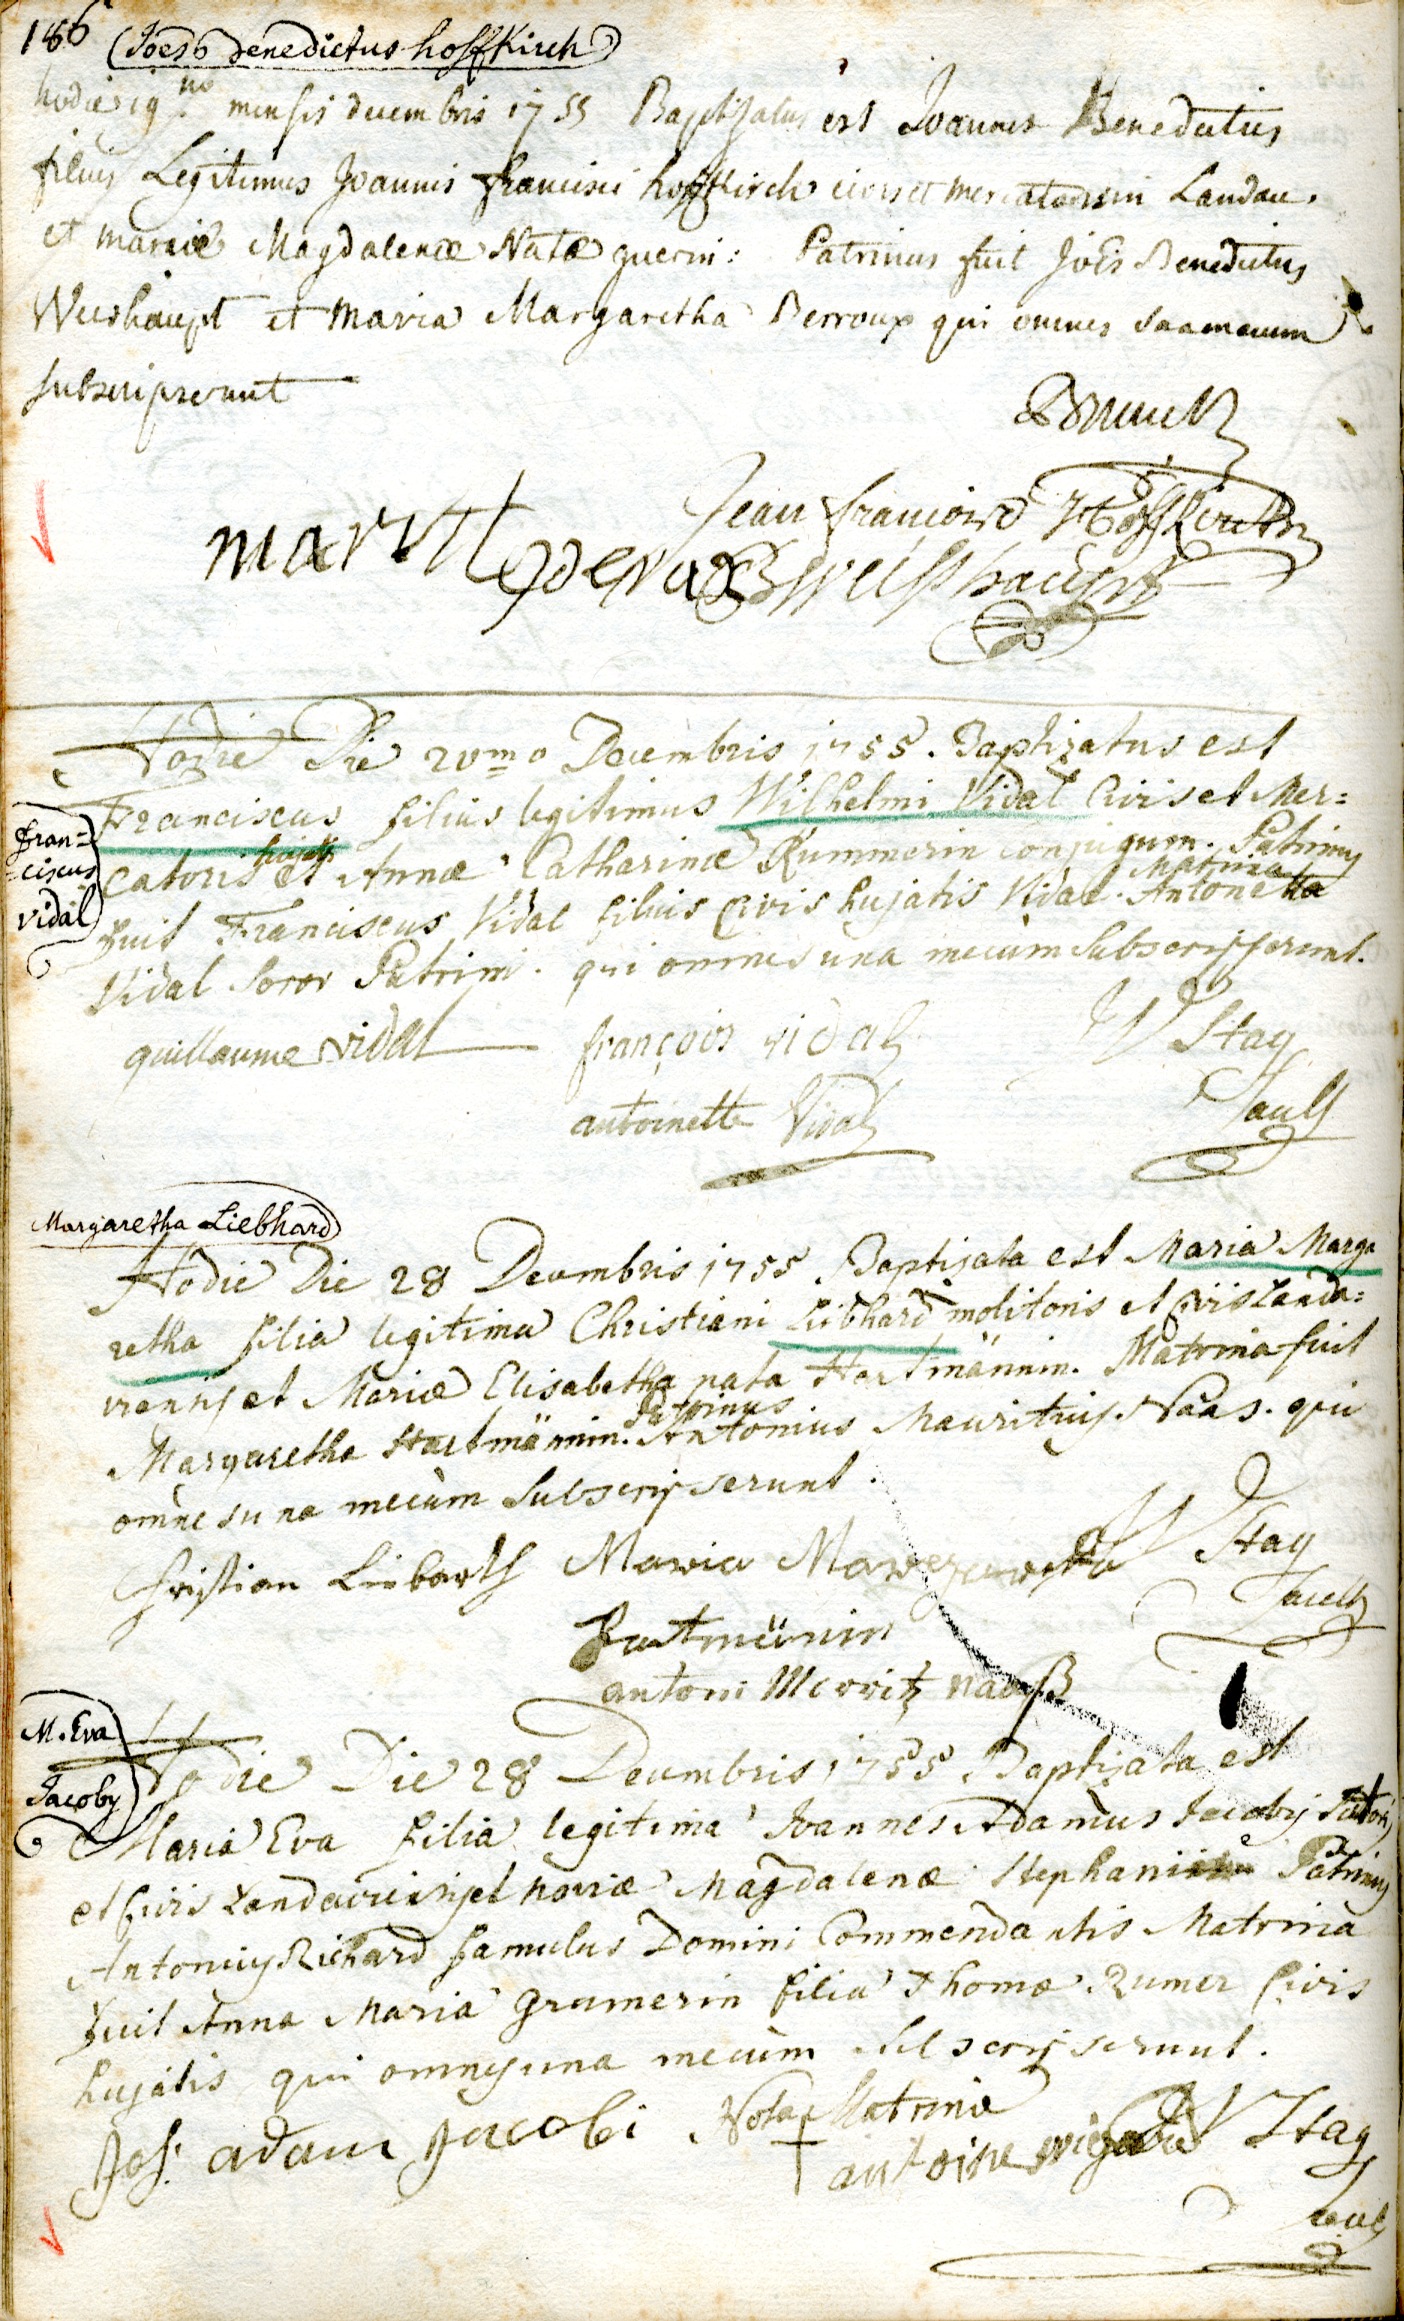 186
(Joes Benedictus hoffkirch)
hodie 19no mensis decembris 1755 Baptizatus est Joannes Benedictus
filius Legitimus Joannis francisci hoffkirch civis et mercatoris in Landau.
et mariæ Magdalenæ Natæ guerin: Patrinus fuit Joës Benedictus
Weishaupt et Maria Margaretha Perroux qui omnes una mecum
subscripserunt
Jean françois Hoffkirch
B Weisshaupt
Hodie Die 20mo Decembris 1755. Baptizatus est
Franciscus filius legitimus Wilhelmi Vidal Civis et Mer=
fran=
=ciscus
vidal
catoris hujatis et Annæ Catharinæ Rummerin conjugum. Patrinus
fuit Franciscus Vidal filius Civis hujatis Vidal. Matrina Antonetta
Vidal Soror Patrini. qui omnes una mecùm Subscripserunt.
guillaume vidal françois vidal
antoinette Vidal
Margaretha Liebhard
Hodie Die 28 Decembris 1755. Baptizata est Maria Marga
retha filia legitima Christiani Liebhard molitoris et Civis Landa=
viensis et Mariæ Elisabetha nata Hartmännin. Matrina fuit
Margaretha Hartmännin. Patrinus Antonius Mauritius Naas. qui
omnes una mecùm Subscripserunt.
Cristian Liebarth Maria Margaretha
Hartmänin
antoni Morritz naaß
M. Eva
Jacoby
Hodie Die 28 Decembris 1755. Baptizata est
Maria Eva filia legitima Joannes Adamus Jacobij Sutoris
et Civis Landaviensis et Mariæ Magdalenæ Stephani Patrinus
Antonius Richard famulus Domini Commendantis Matrina
fuit Anna Maria grumerin filia Thomæ Rumer Civis
hujatis qui omnes una mecùm Subscripserunt.
Joh: adam Jacobi Nota Matrinæ
+ antoine